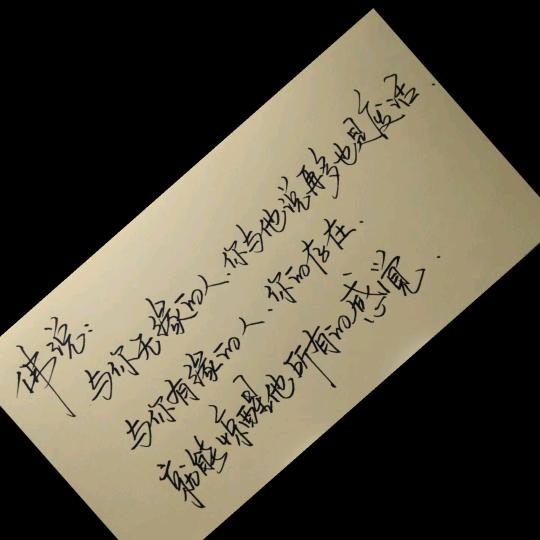 佛说:
与你无缘的人、你与他说再多也是废话.
与你有缘的人、你的存在.
就能惊醒他所有的感觉.